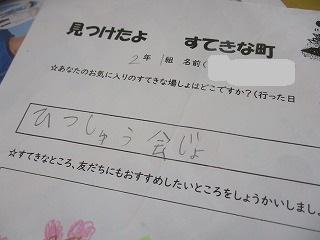 見つけたよ　すてきな町
2年 1組 名前(
☆あなたのお気に入りのすてきな場しょはどこですか?(行った日
ひっしゅう会じょ
☆すてきなところ、友だちにもおすすめしたいところをしょうかいしましょ